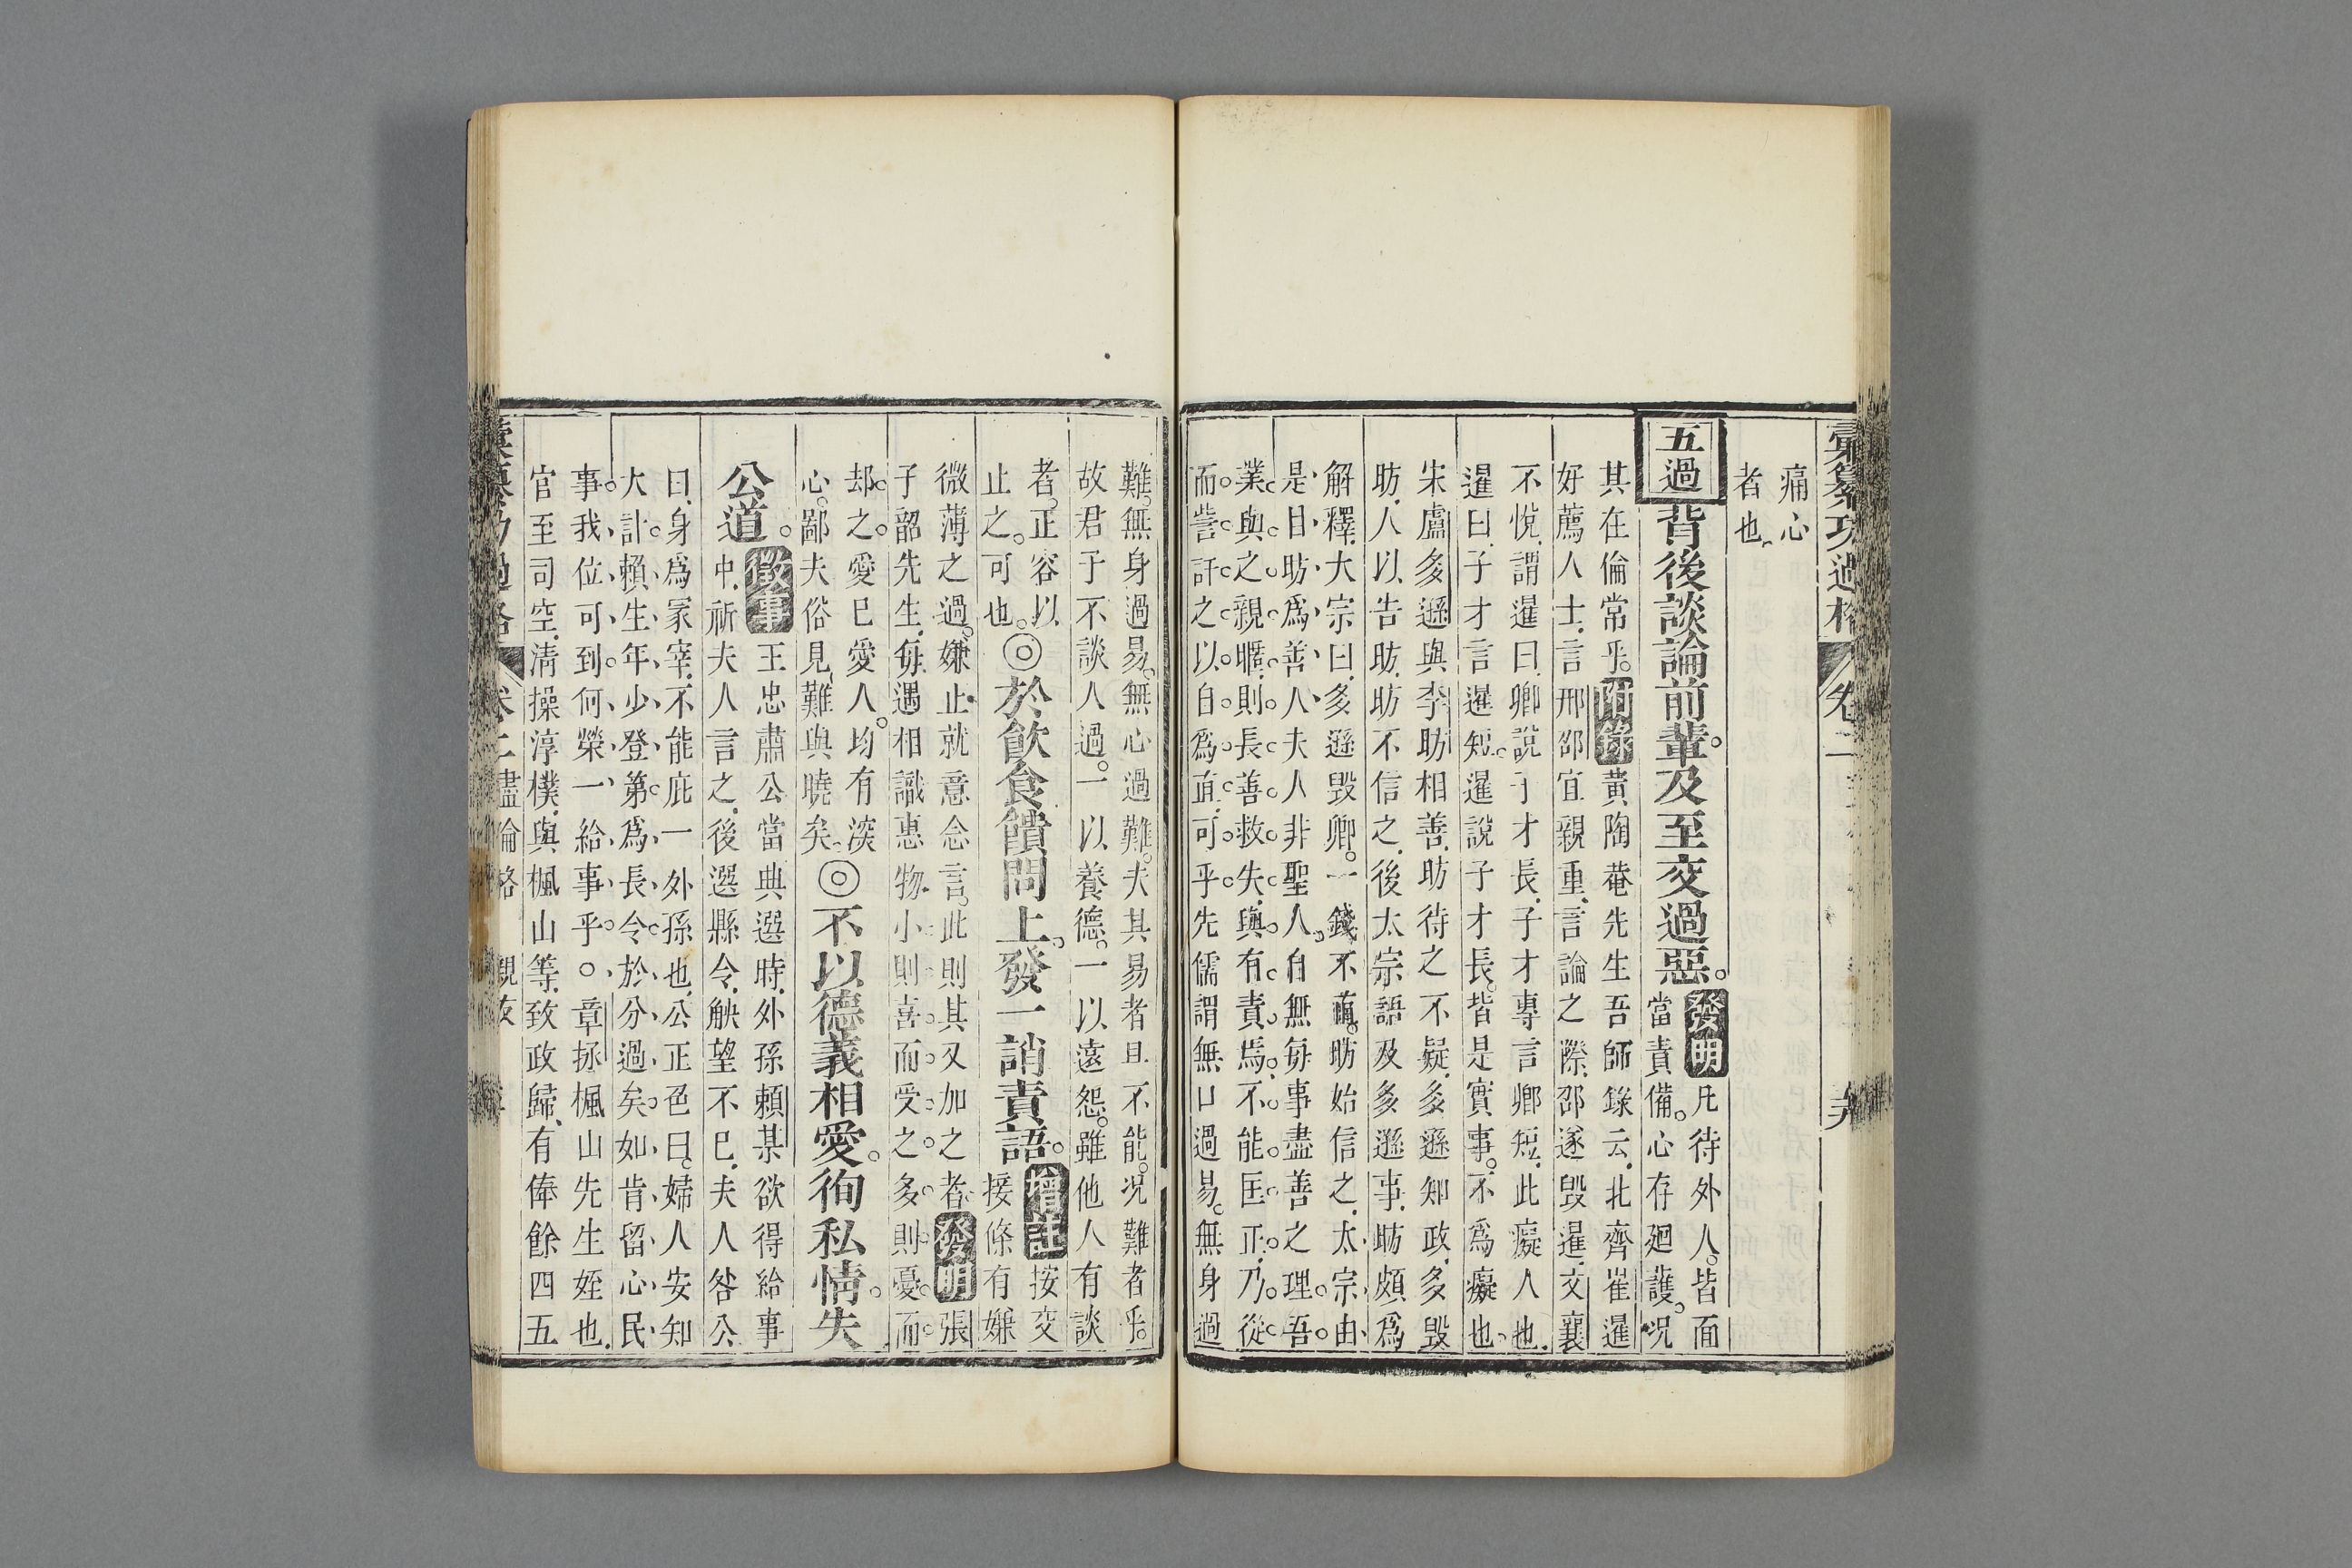 彙纂功過格 卷二
痛心
者也
五過 背後談論前輩及至交過惡。發明 凡待外人。皆面
當責備。心存廻護。况
其在倫常乎。附錄 黃陶菴先生吾師錄云北齊崔暹
好薦人士言邢邵宜親重言論之際邵遂毀暹文襄
不悅謂暹曰卿說子才長子才專言卿短此癡人也
暹曰子才言暹短暹說子才長皆是實事不爲癡也
宋盧多遜與李昉相善昉待之不疑多遜知政多毀
昉人以告昉昉不信之後太宗語及多遜事昉頗爲
解釋大宗曰多遜毀卿一錢不直昉始信之太宗由
是目昉爲善人夫人非聖人自無每事盡善之理吾
業與之親暱則長善救失與有責焉不能匡正乃從
而訾訐之以自爲直可乎先儒謂無口過易無身過
難無身過易無心過難夫其易者且不能况難者乎
故君子不談人過一以養德一以遠怨雖他人有談
者正容以
止之可也◎於飲食饋問上發一誚責語。增註 按交
接條有嫌
微薄之過嫌止就意念言此則其又加之者發明 張
子韶先生每遇相識惠物小則喜而受之多則憂而
却之愛已愛人均有淡
心鄙夫俗見難與曉矣◎不以德義相愛。徇私情。失
公道。徵事 王忠肅公當典選時外孫賴某欲得給事
中祈夫人言之後選縣令觖望不已夫人咎公
曰身爲冢宰不能庇一外孫也公正色曰婦人安知
大計賴生年少登第爲長令於分過矣如肯留心民
事我位可到何榮一給事乎○章拯楓山先生姪也
官至司空淸操淳樸與楓山等致政歸有俸餘四五